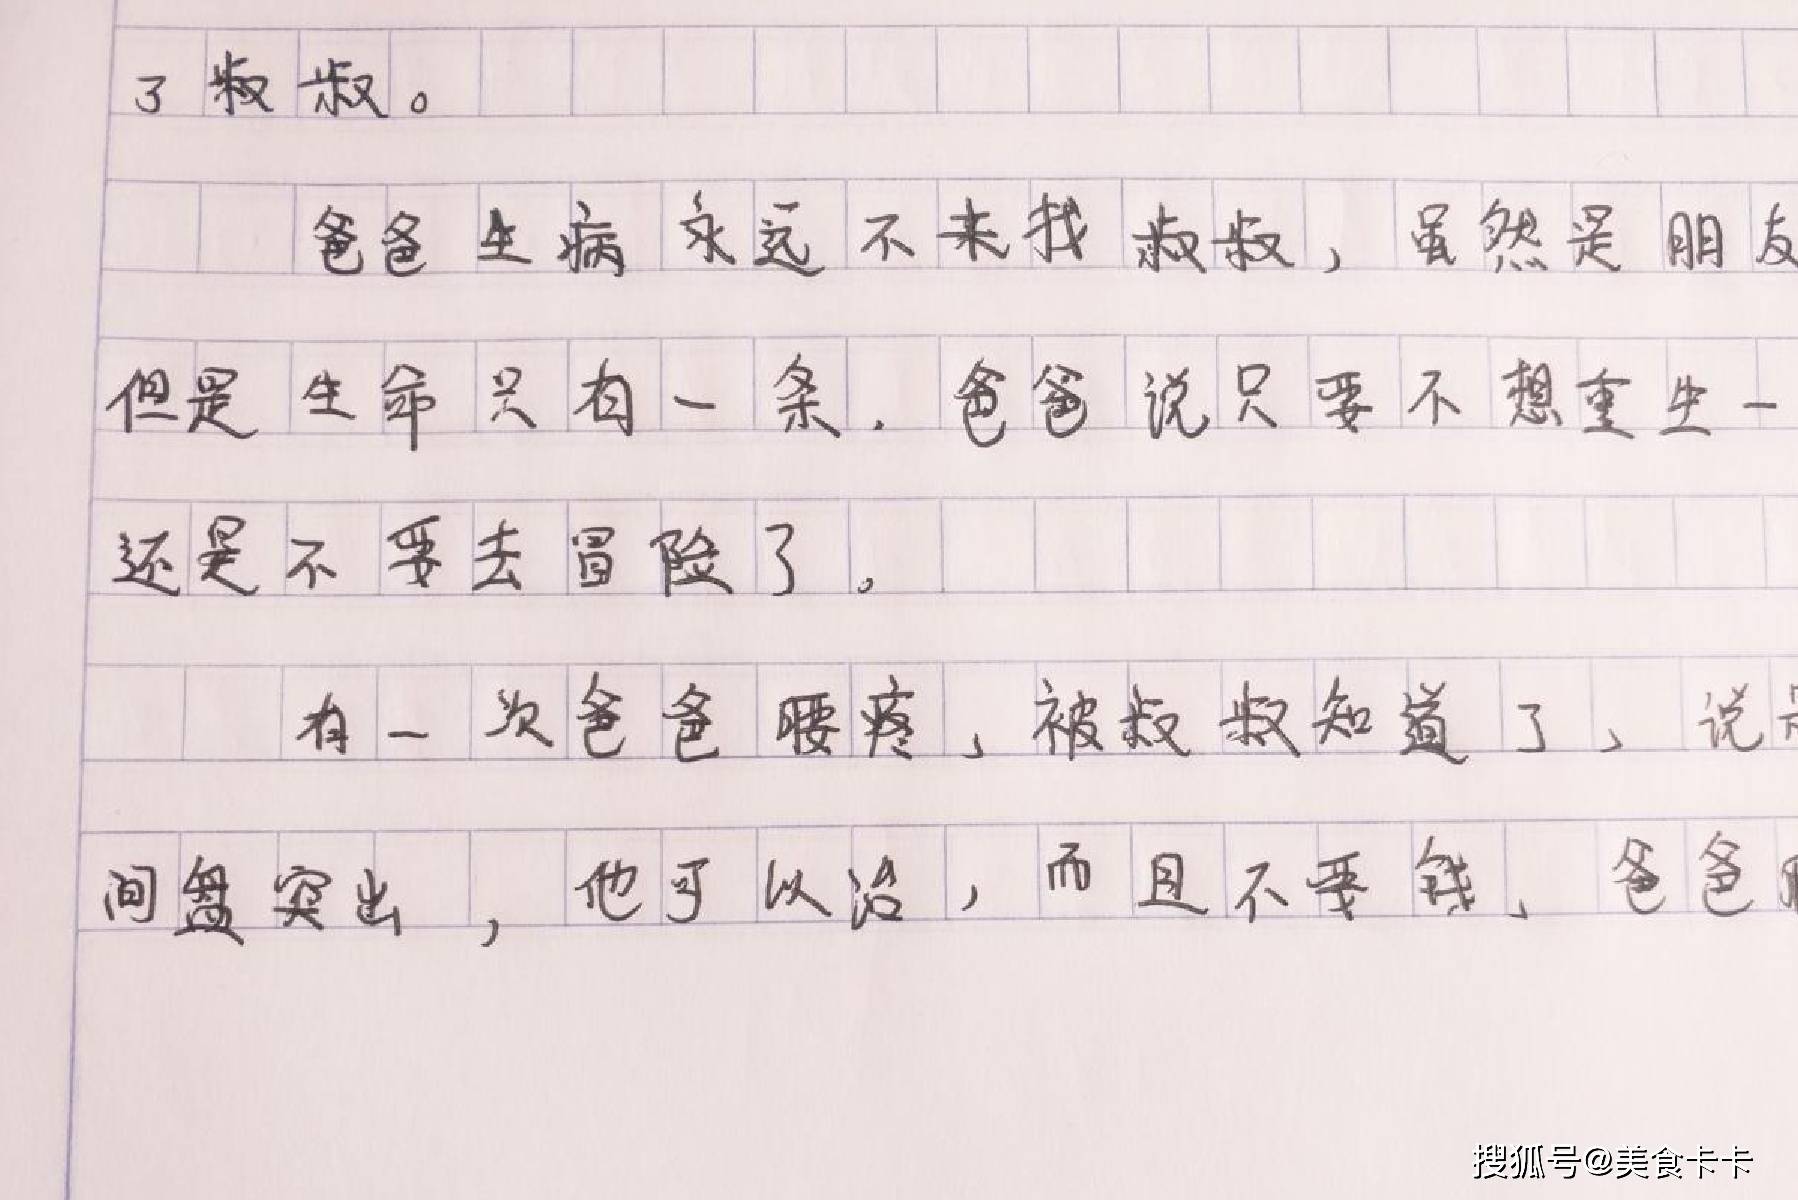 了叔叔。
爸爸生病永远不来找叔叔，虽然是朋友
但是生命只有一条．爸爸说只要不想重生一
还是不要去冒险了。
有一次爸爸腰疼，被叔叔知道了，说是
间盘突出，他可以治，而且不要钱、爸爸
搜狐号@美食卡卡